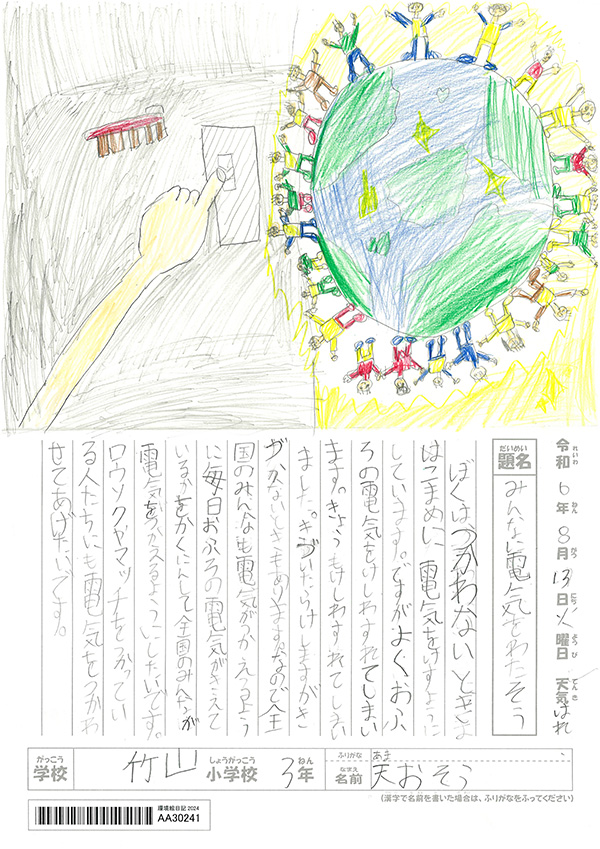 令和6年8月13日火曜日 天気はれ
れいわ ねん がつ にち ようび てんき
だいめい
題名 みんなに電気をわたそう
ぼくはつかわないときよ
はこまめに電気をけすように
しています。ですがよくおふ
ろの電気をけしわすれてしまい
ます。きょうもけしわすれてしまい
ました。きづいたらけしますがき
づかないときもあります。なので全
国のみんなも電気がつかえるよう
に毎日おふろの電気がきえて
いるかをかくにんして全国のみんなが
電気をつかえるようにしたいです。
ロウソクやマッチをつかってい
る人たちにも電気をつかわ
せてあげたいです。
がっこう しょうがっこう ねん ふりがな あま
学校 竹山 小学校 3年 なまえ 名前 天おそう
(漢字で名前を書いた場合は、ふりがなをふってください)
環境絵日記 2024
AA30241